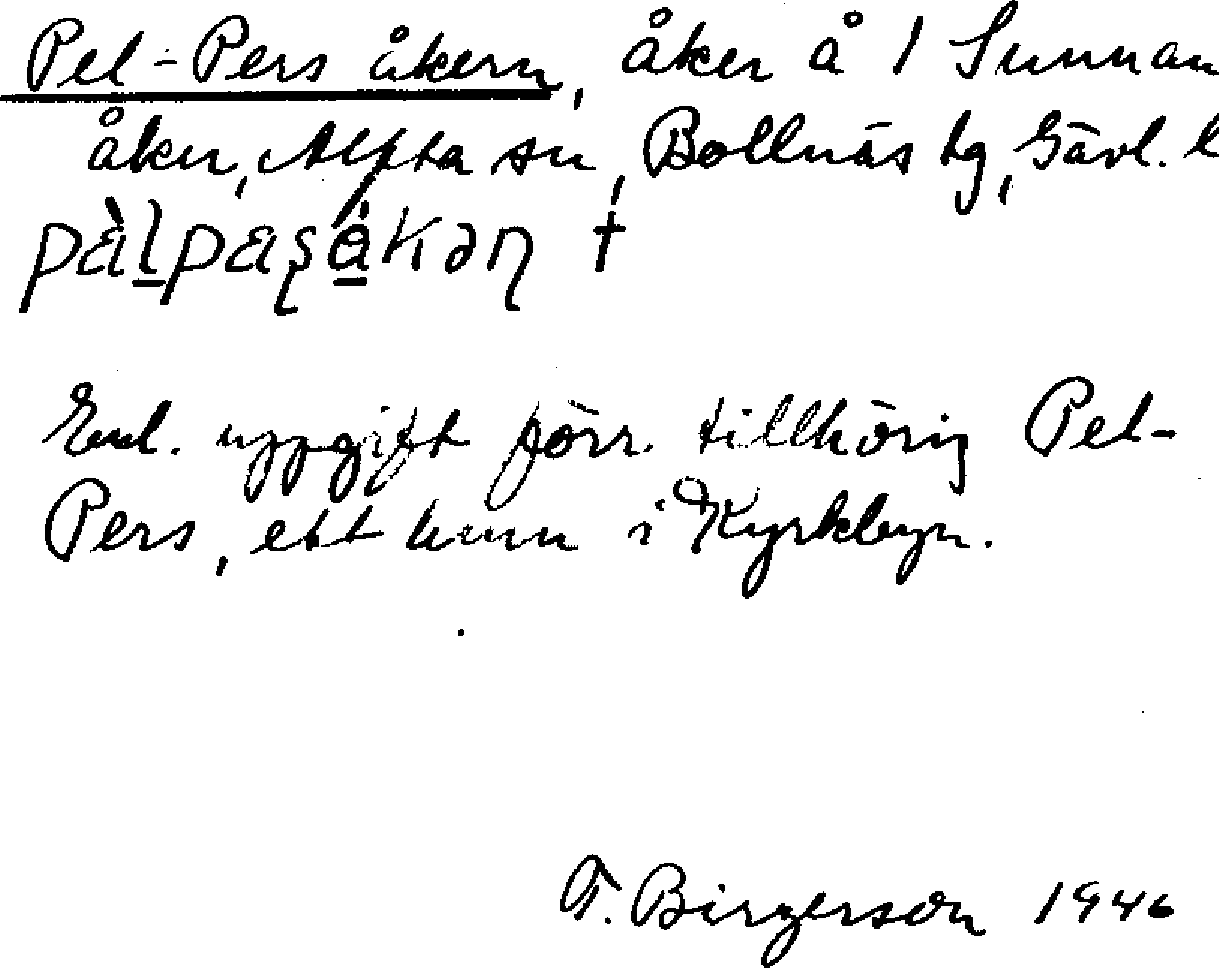 Pel-Pers åkern, åker å 1 Sunnan
åker, Alfta sn, Bollnäs tg, Gävl. l
pàlpaʂåkəɳ †
Enl. uppgift förr tillhörig Pel-
Pers, ett hemm i Kyrkbyn.
F. Birgerson 1946